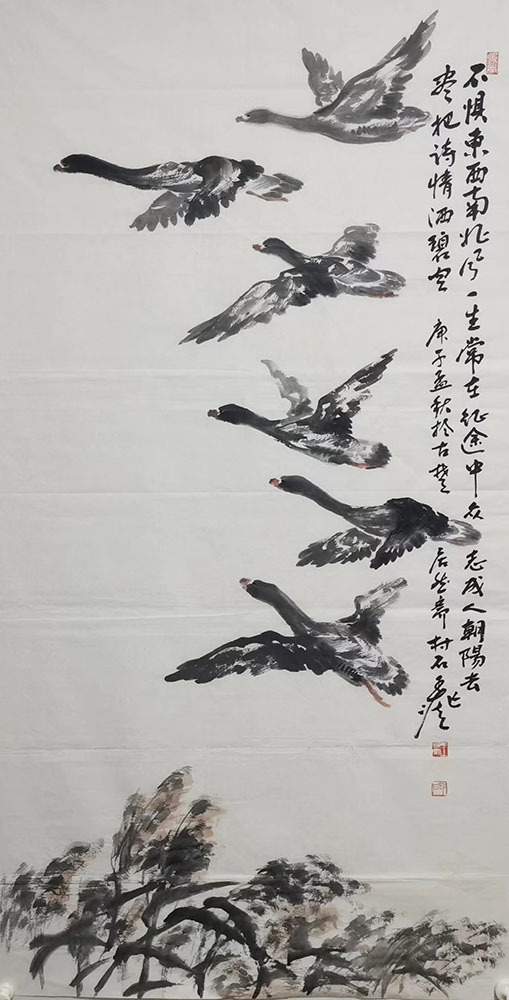 不惧东西南北风一生常在征途中众志成人朝陽去
尽把诗情洒碧空 庚子孟秋於古楚 居然斋 村石